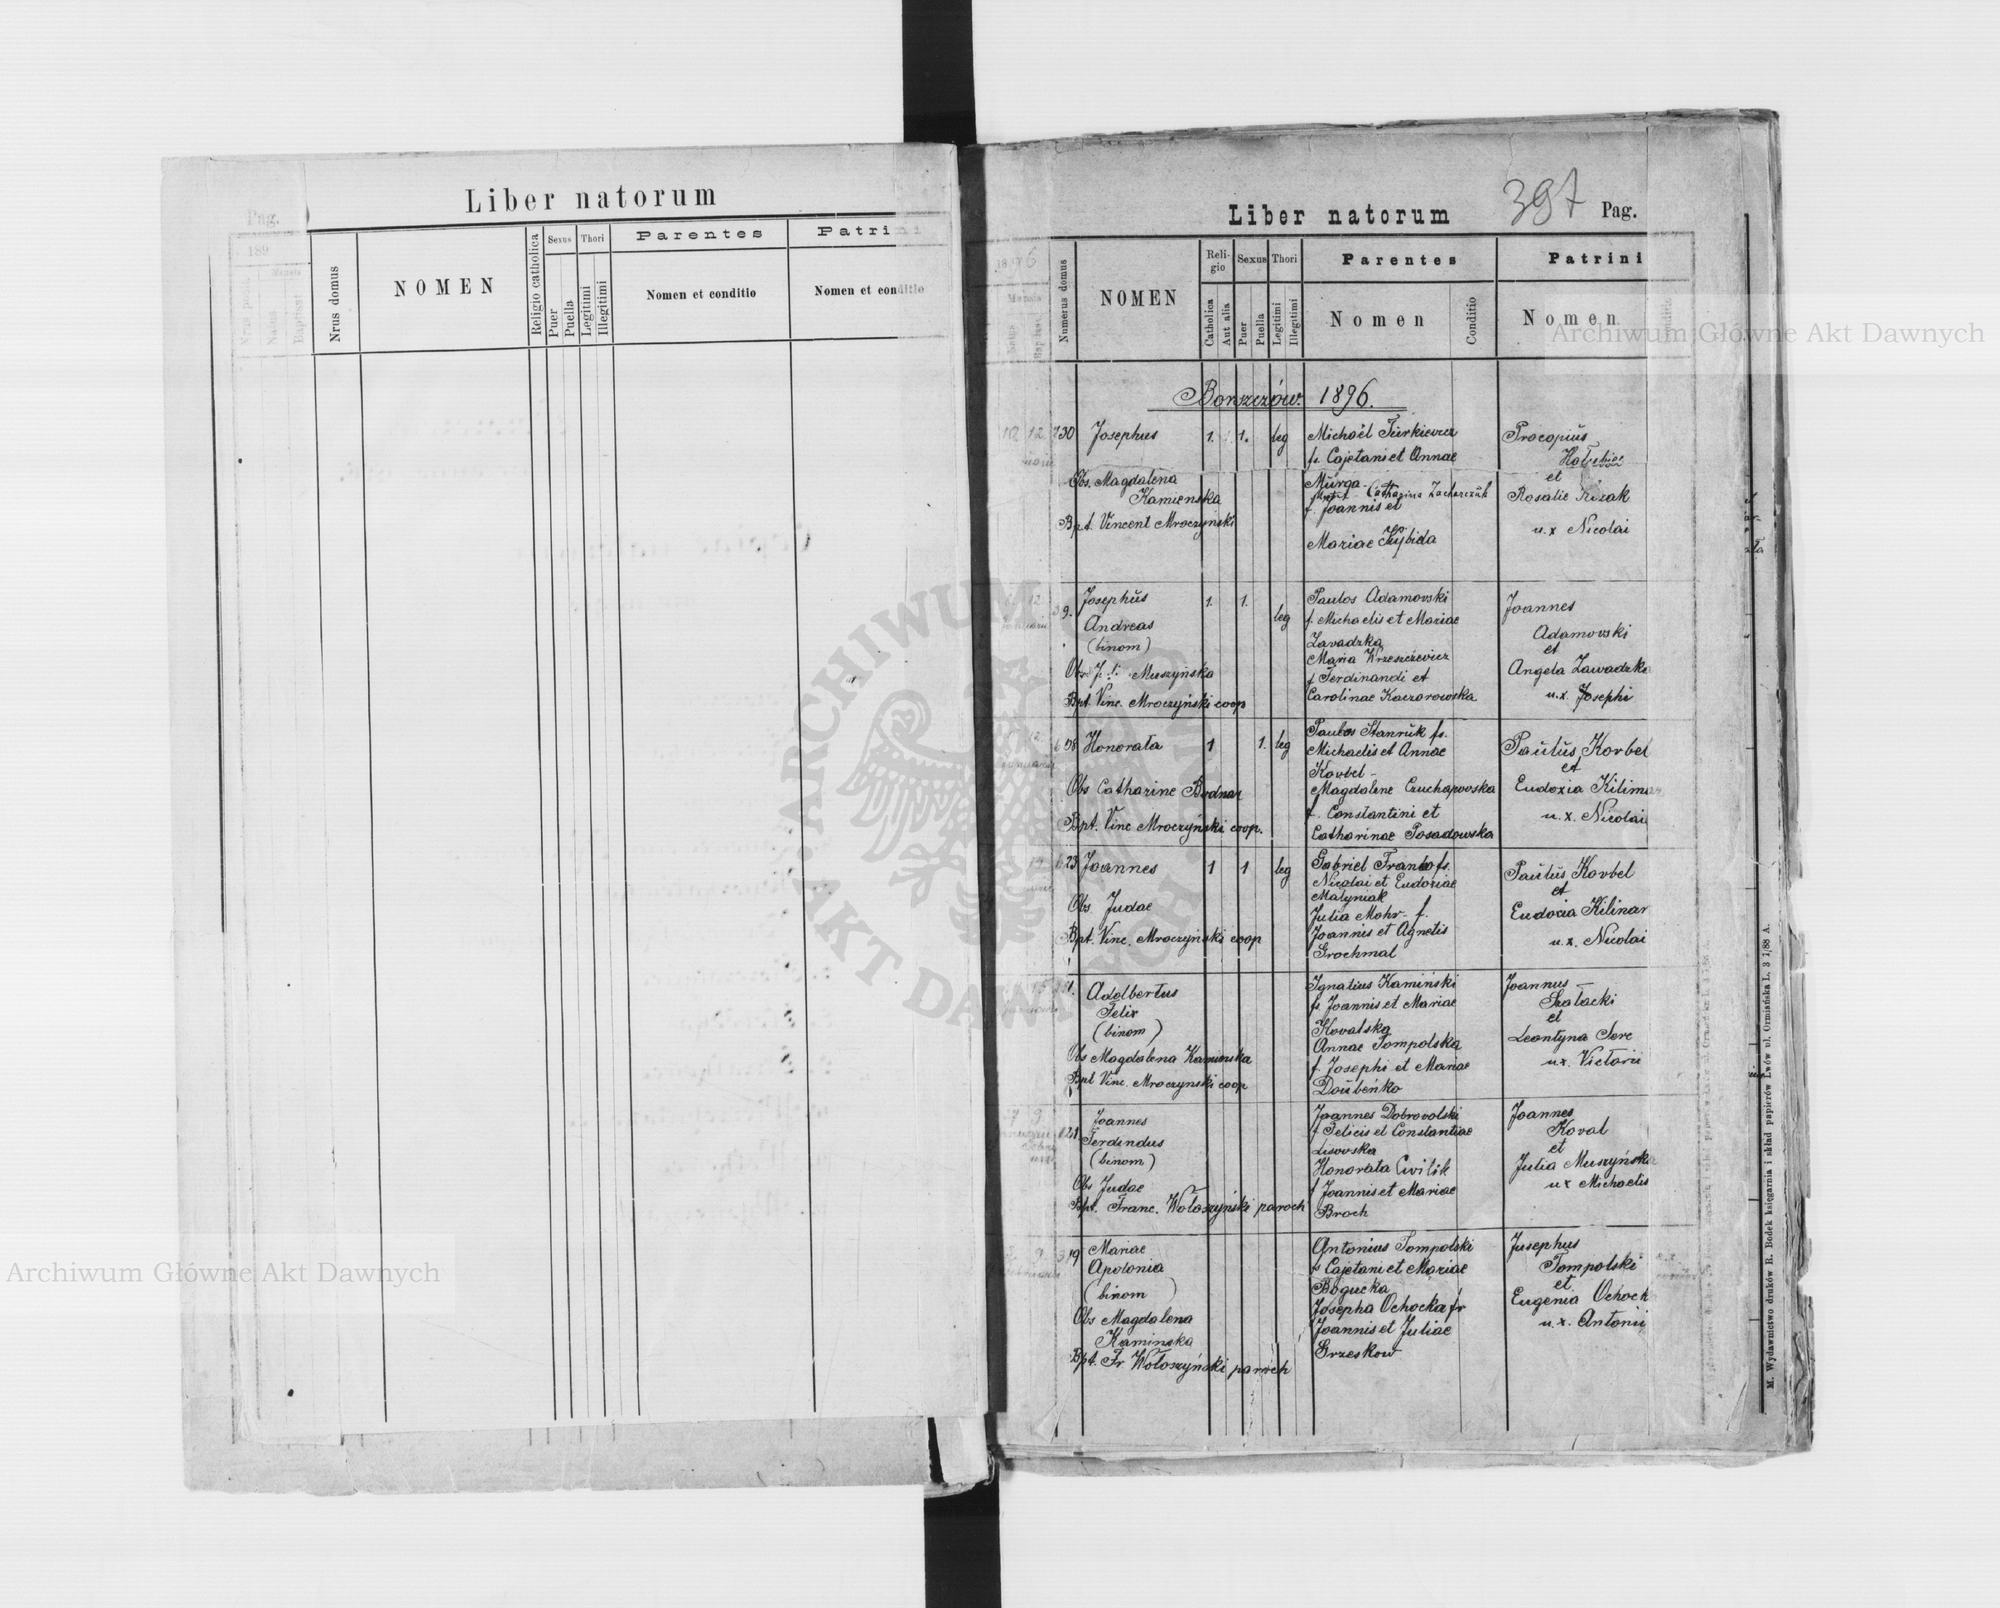 Liber natorum
Pag.
189
Mensis
Natus
Baptisat
Nrus domus
NOMEN
Religio catholica
Sexus
Puer
Puella
Thori
Legitimi
Illegitimi
Parentes
Nomen et conditio
Patrini
Nomen et conditio
Liber natorum
397 Pag.
1896
Mensis
Natus
Numerus domus
NOMEN
Reli-
gio
Catholica
Aut alia
Sexus
Puer
Puella
Thori
Legitimi
Illegitimi
Parentes
Nomen
Conditio
Patrini
Nomen
Borszczów. 1896.
10 12 730 Josephus 1. 1. leg
Obs. Magdalena
Kamienska
Bpt. Vincent Mroczyński
Michaël Turkiewicz
fs. Cajetani et Annae
Murga -
Catharina Zacharczuk
f. Joannis et
Mariae Kybida
Procopius
et
Rosalie
u.x Nicolai
12 39. Josephus 1. 1. leg
Andreas
(binom)
Obs. Muszyńska
Bpt. Vinc. Mroczyński coop
Paulos Adamovski
f. Michaelis et Mariae
Zavadzka
Maria Krzeszczewicz
f Ferdinandi et
Carolinae Kaczorowska
Joannes
Adamovski
et
Angela Zawadzka
u.x. Josephi
12 608 Honorata 1 1. leg
Obs Catharine Bodnar
Bpt. Vinc Mroczyński coop.
Paulos Stanruk fs.
Michaelis et Annae
Korbel -
Magdalene Czuchapovska
f. Constantini et
Catharinae Posadowska
Paulus Korbel
et
Eudoxia Kilimar
u.x. Nicolai
623 Joannes 1 1 leg
Obs. Judae
Bpt. Vinc. Mroczyński coop
Gabriel Franko fs.
Nicolai et Eudoxiae
Matyniak
Julia Mohr - f.
Joannis et Agnetis
Grochmal
Paulus Korbel
et
Eudoxia Kilinar
u.x. Nicolai
Adalbertus
Felix
(binom)
Obs Magdalena Kamienska
Bpt Vinc. Mroczynski coop
Ignatius Kamiński
fs Joannis et Mariae
Kovalska
Annae Tompolska
f. Josephi et Mariae
Doubeńko
Joannus
Szałacki
et
Leontyna Serc
u.x. Victorii
9 121 Joannes
Ferdindus
(binom)
Obs Judae
Bpt. Franc. Wołoszyński paroch
Joannes Dobrovolski
f Felicis et Constantiae
Lisovska
Honorata Cwilik
f Joannis et Mariae
Broch
Joannes
Koval
et
Julia Muszyńska
ux Michaelis
9 319 Mariae
Apolonia
(binom)
Obs Magdalena
Kaminska
Bpt. Fr Wołoszyński paroch
Antonius Tompolski
fs Cajetani et Mariae
Bogucka
Josepha Ochocka fr
Joannis et Juliae
Grzeskow
Jusephus
Tompolski
et
Eugenia Ochock
u.x. Antonii
M. Wydawnictwo druków R. Bodek księgarnia i skład papierów Lwów ul. Ormiańska L. 3 1/88 A.
Archiwum Główne Akt Dawnych
Archiwum Główne Akt Dawnych
ARCHIWUM GŁÓWNE AKT DAWNYCH